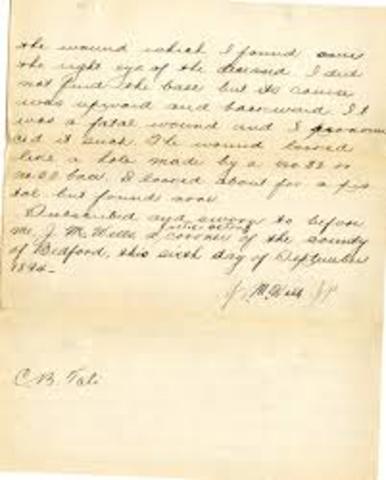 the wound which I found over
the right eye of the deceased. I did
not find the ball but its course
was upward and backward. It
was a fatal wound and I pronoun
ced it such. The wound looked
like a hole made by a no 32 or
ball. I looked about for a pis
tol but found none
Subscribed and sworn to before
me, J. M. Wells, J.P. acting
a coroner of the county
of Bedford, this sixth day of September
1894-
J M Wells JP
C. B. Tate